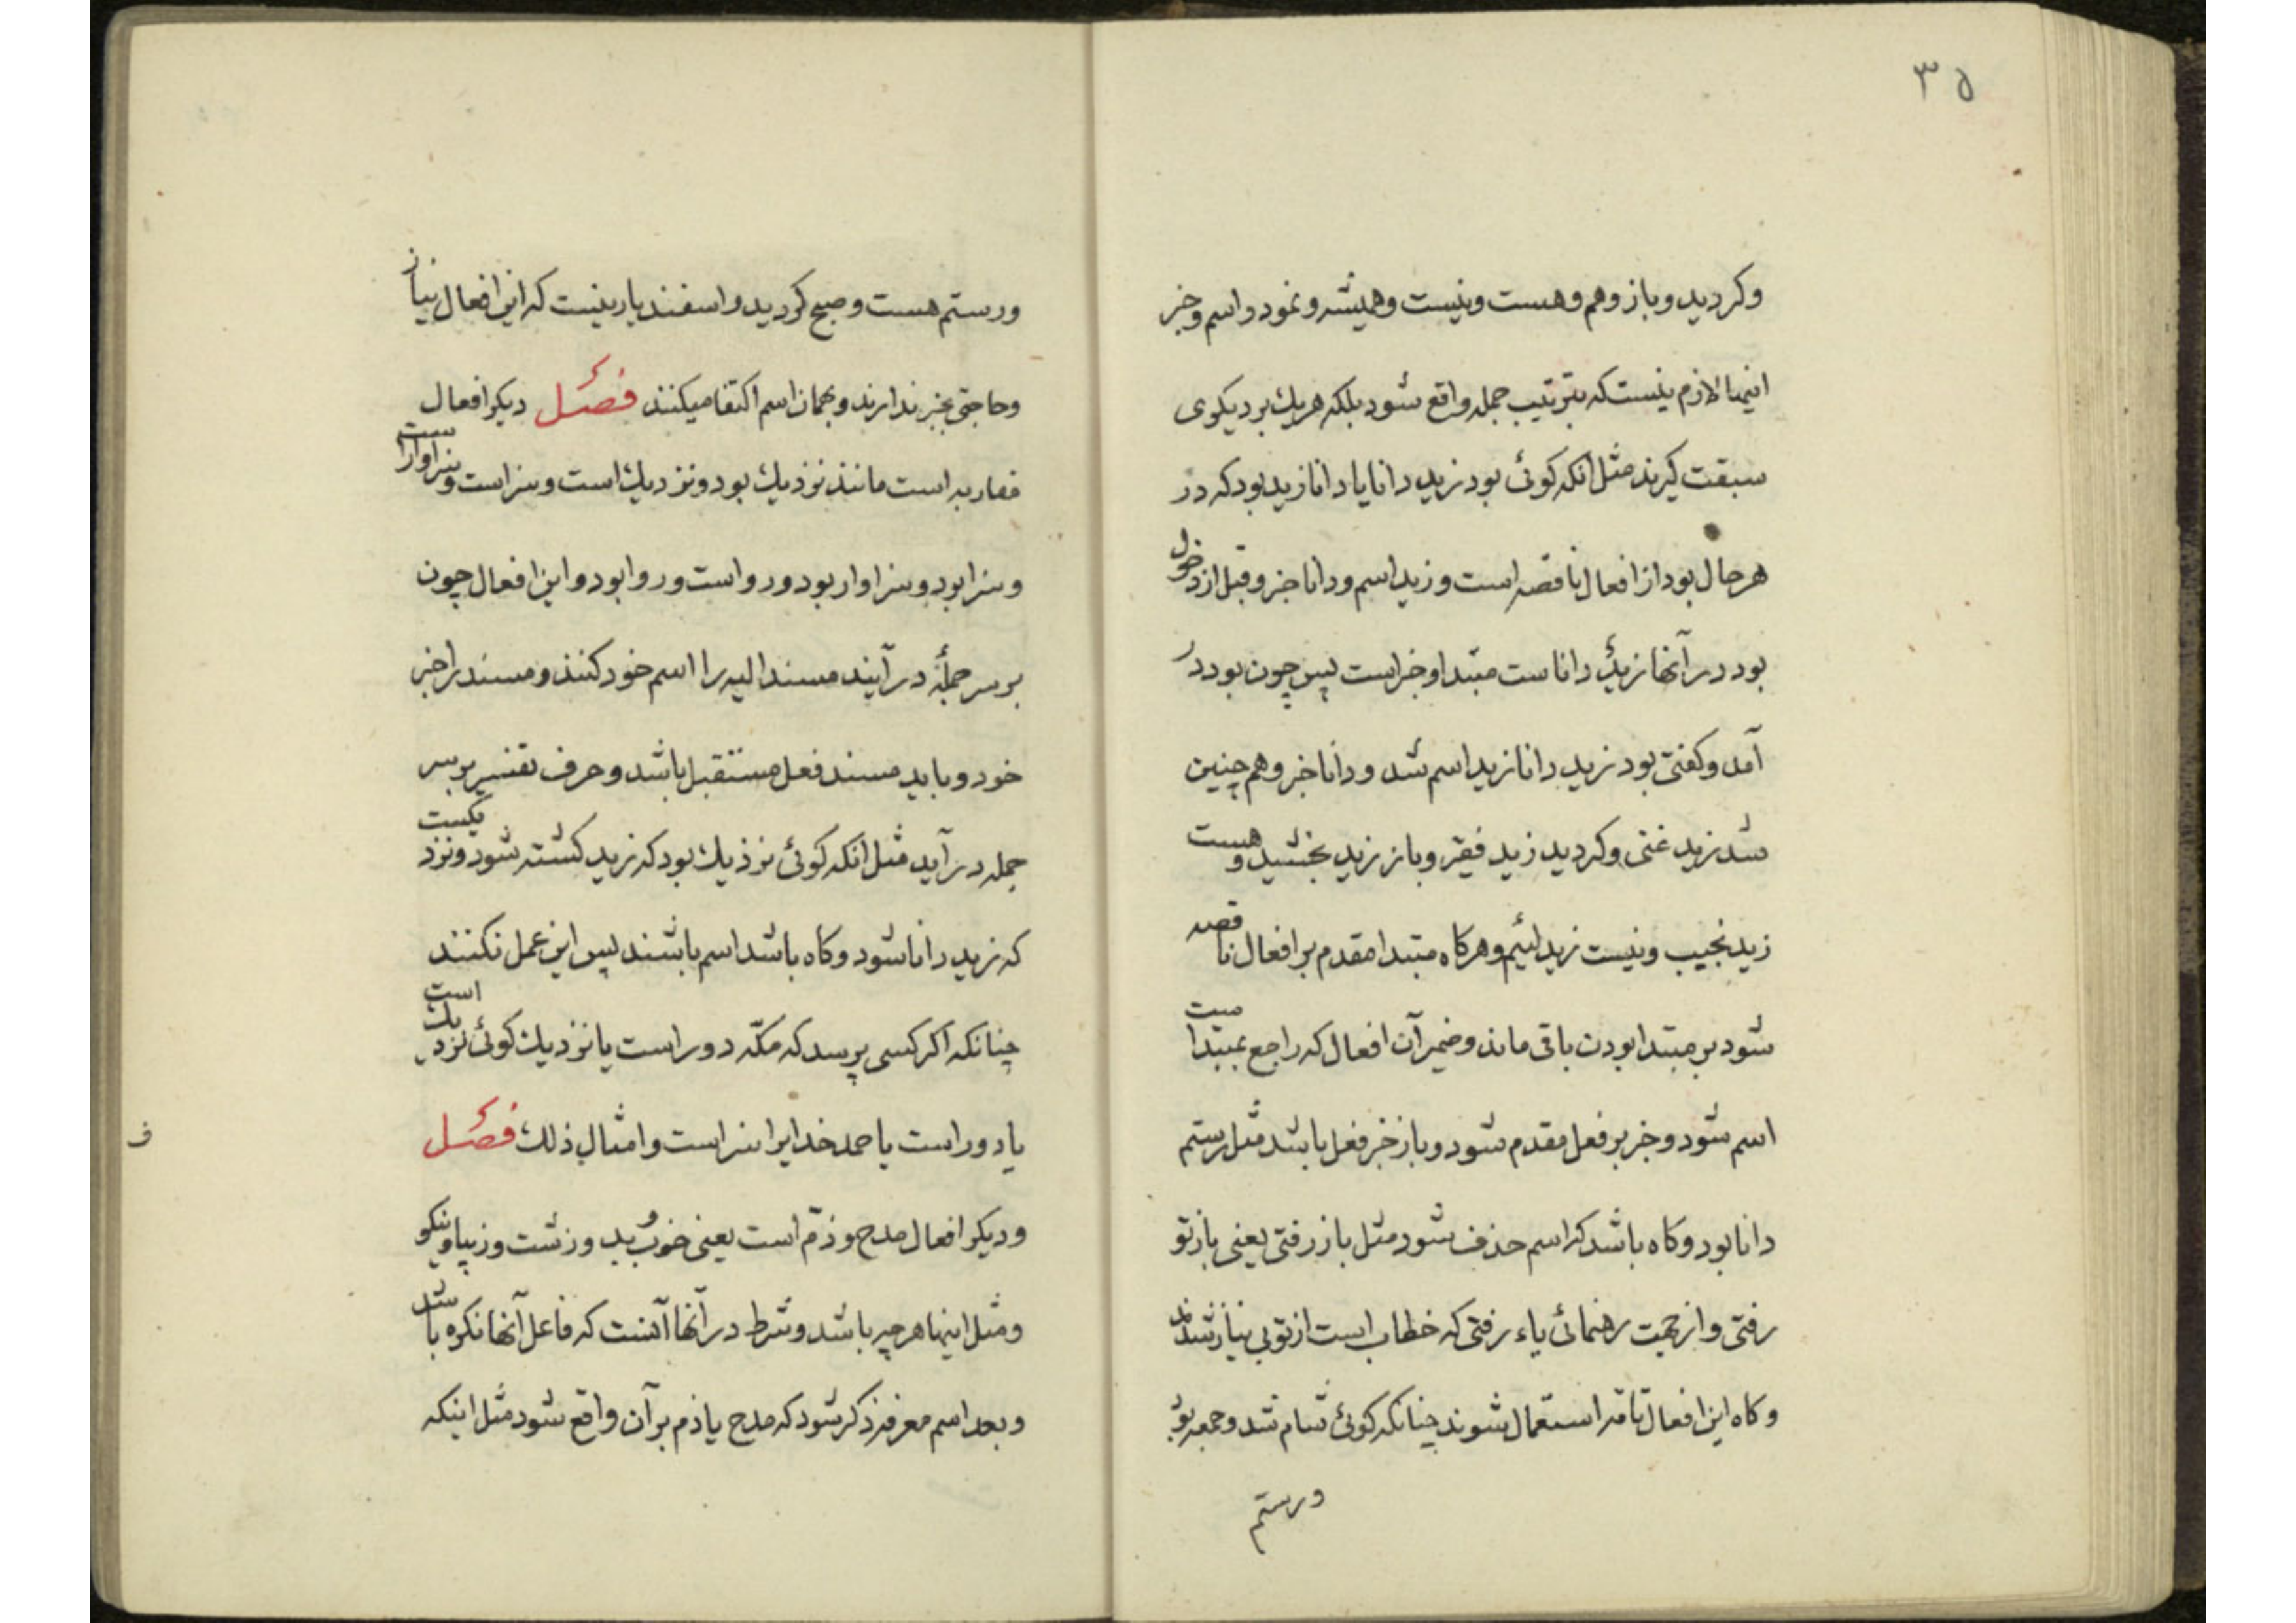 ۳۵
وکردید وباز وهم وهست ونیست وهمیشه ونمود واسم وخبر
اینها لازم نیست که بترتیب جمله واقع شود بلکه هریك بر دیکری
سبقت کیرند مثل انکه کوئی بود زید دانا یا دانا زید بود که در
هرحال بود از افعال ناقصه است و زید اسم ودانا خبر و قبل از دخول
بود در آنها زیدُ داناست مبتدا وخبر است پس چون بود در
آمد وکفتی بود زید دانا زید اسم شد ودانا خبر وهم چنین
شد زید غنی وکردید زید فقیر وباز زید بخشید وهست
زید نجیب ونیست زید لئیم وهرکاه مبتدا مقدم بر افعال ناقصه
شود بر مبتدا بودن باقی ماند وضمیر آن افعال که راجع بمبتداست
اسم شود وخبر بر فعل مقدم شود وباز خبر فعل باشد مثل رستم
دانا بود وکاه باشد که اسم حذف شود مثل باز رفتی یعنی باز تو
رفتی واز جهت رهنمائی یاء رفتی که خطاب است از تو بی نیاز شدند
وکاه این افعال تامّه استعمال شوند چنانکه کوئی شام شد وجمعه بود
ورستم
ورستم هست وصبح کردید واسفندیار نیست که این افعال نیاز
وحاجتی بخبر ندارند وبهمان اسم اکتفا میکنند فصل دیکر افعال
مقاربه است مانند نزدیك بود ونزدیك است وسزاست وسزاوار است
وسزا بود وسزاوار بود ورواست وروا بود واین افعال چون
بر سر جملهٔ درآیند مسند الیه را اسم خود کنند ومسند را خبر
خود وباید مسند فعل مستقبل باشد وحرف تفسیر بر سر
جمله درآید مثل انکه کوئی نزدیك بود که زید کشته شود ونزدیکست
که زید دانا شود وکاه باشد اسم باشند پس این عمل نکنند
چنانکه اکر کسی پرسد که مکّه دور است یا نزدیك کوئی نزدیك است
یا دور است یا حمد خدایرا سزاست وامثال ذلك فصل
ودیکر افعال مدح وذمّ است یعنی خوب وبد وزشت وزیبا ونیکو
ومثل اینها هرچه باشد وشرط در آنها آنست که فاعل آنها نکره باشد
وبعد اسم معرفه ذکر شود که مدح یا ذم بر آن واقع شود مثل اینکه
ف